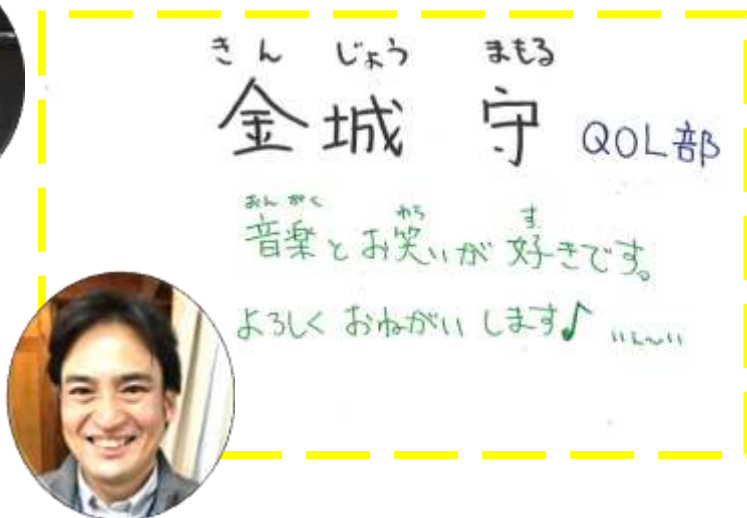 きん じょう まもる
金城 守 QOL部
おんがく わら す
音楽とお笑いが好きです。
よろしくおねがいします♪ いぇ〜い